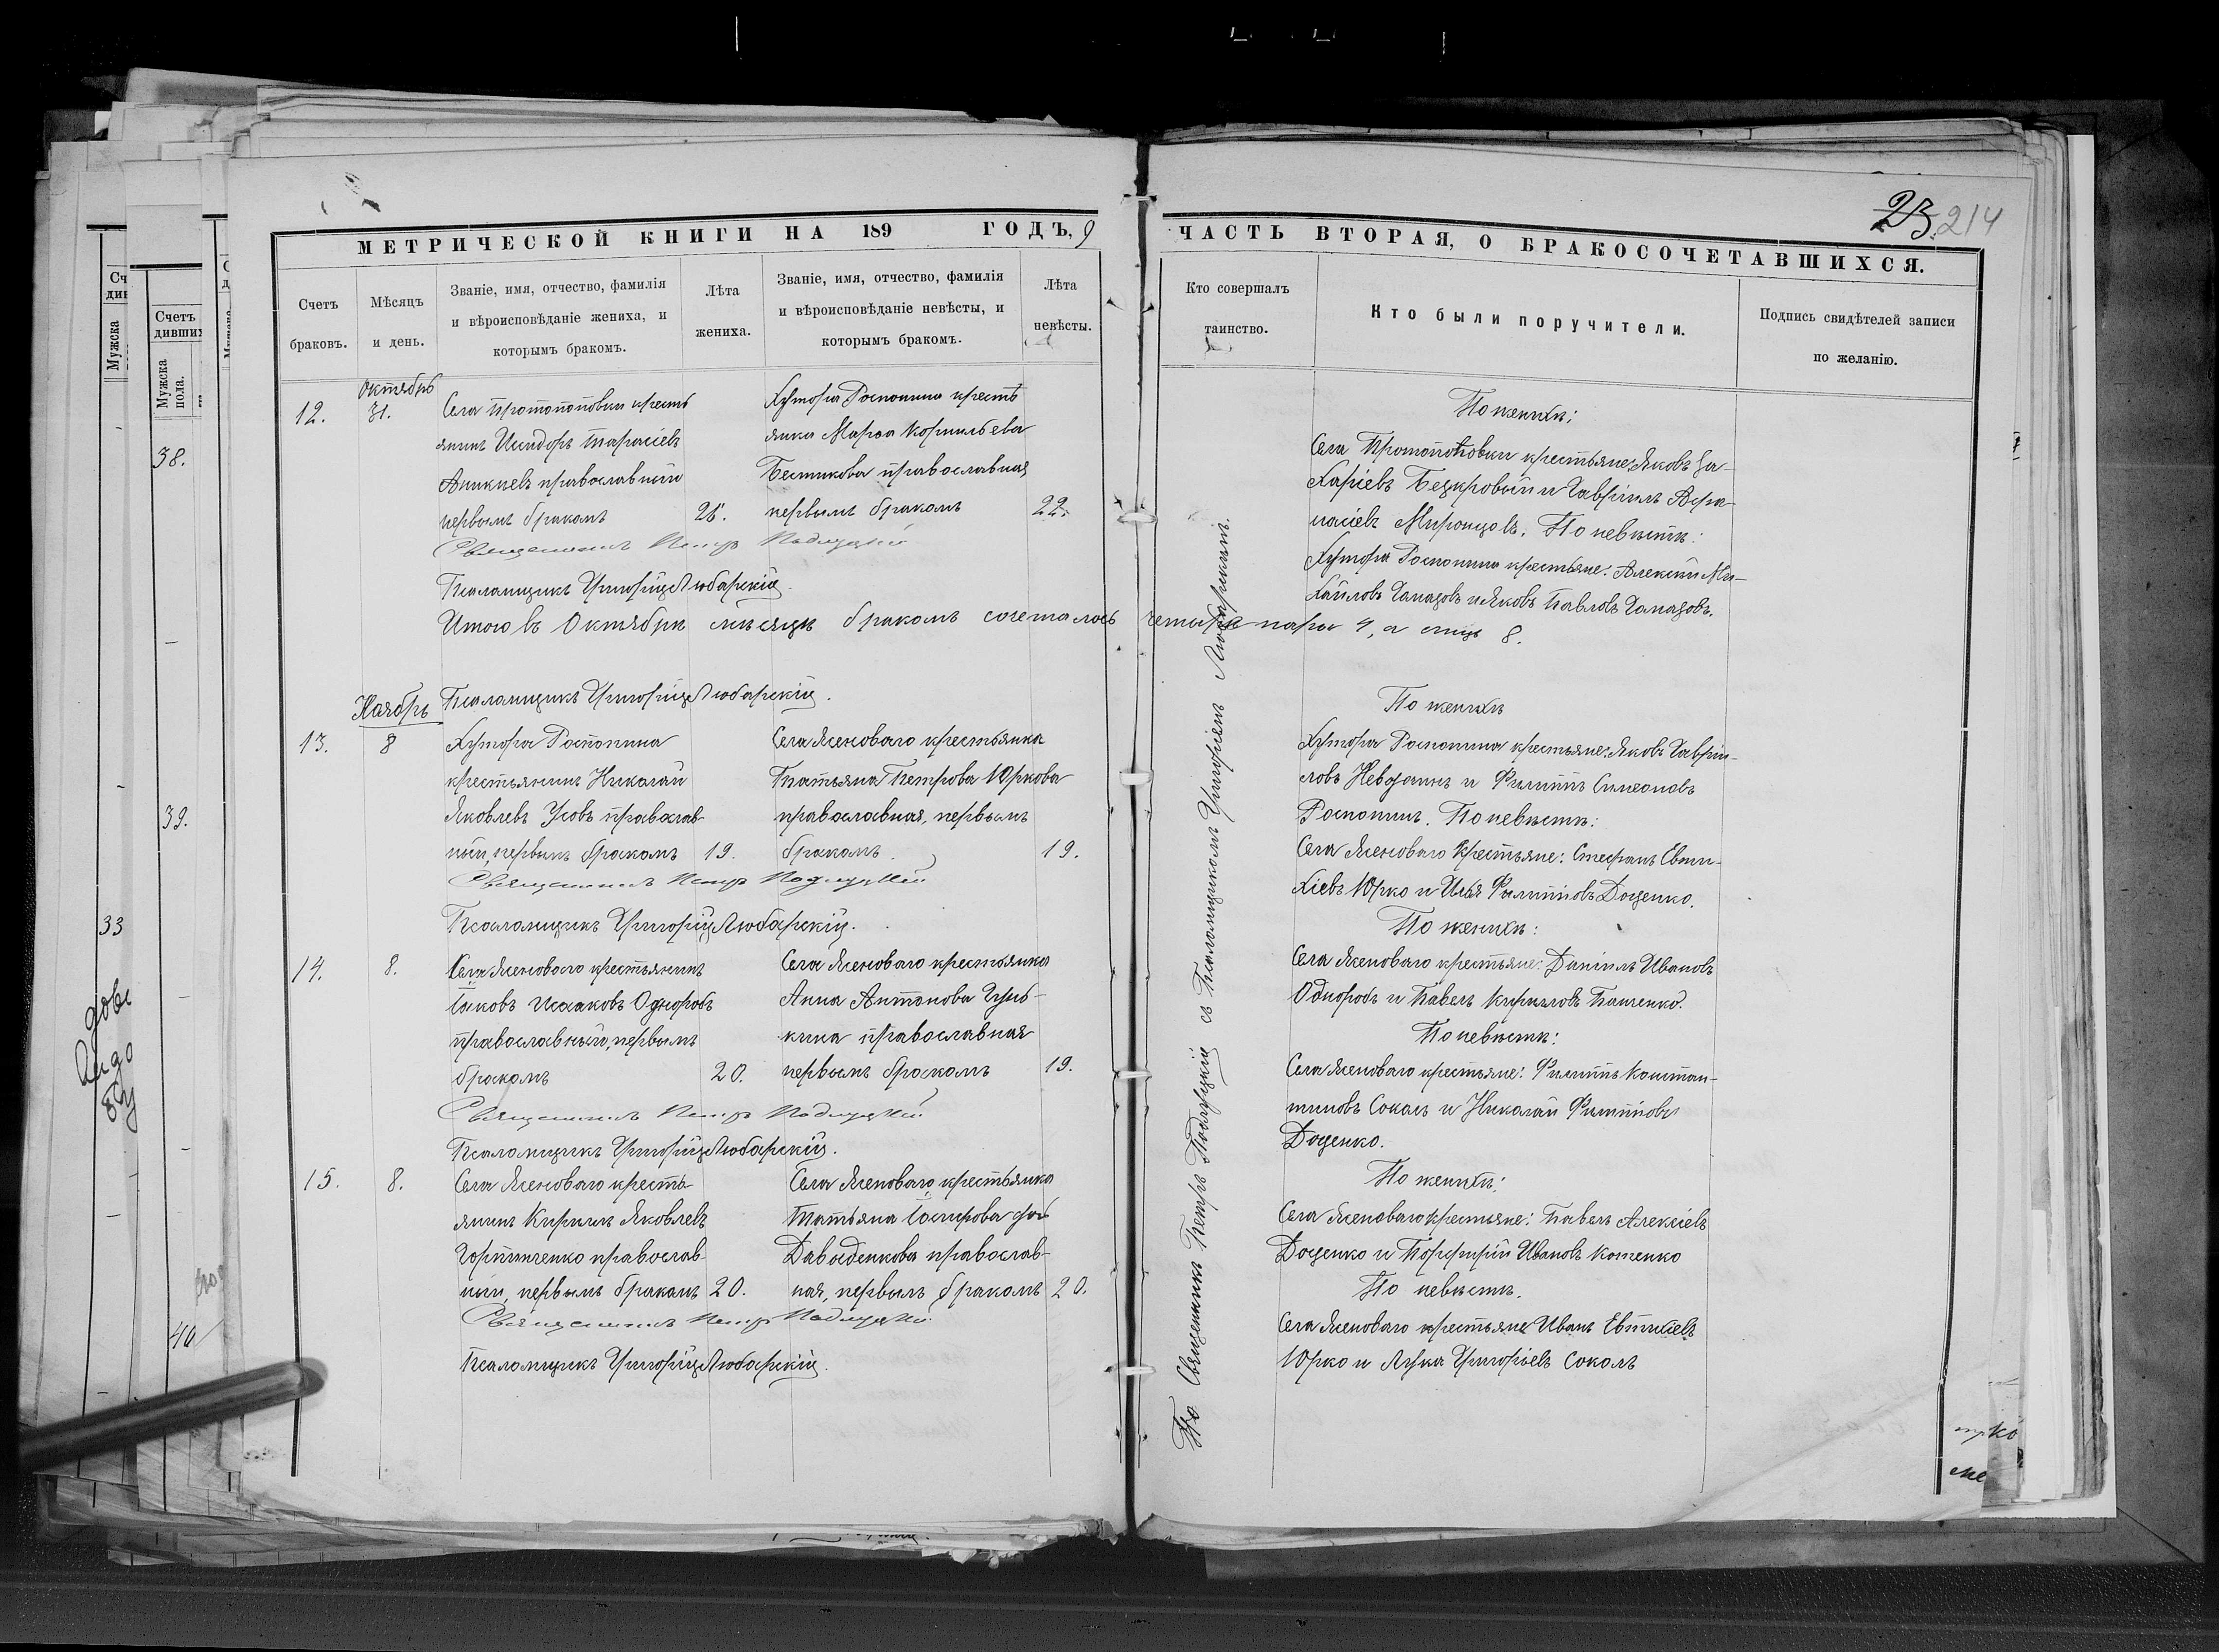 МЕТРИЧЕСКОЙ КНИГИ НА 1899 ГОДЪ,
Счетъ браковъ.
Мѣсяцъ и день.
Званіе, имя, отчество, фамилія
и вѣроисповѣданіе жениха, и
которымъ бракомъ.
Лѣта жениха.
Званіе, имя, отчество, фамилія
и вѣроисповѣданіе невѣсты, и
которымъ бракомъ.
Лѣта невѣсты.
Октябрь
12.
31.
Села Протопоповки кресть
янинъ Исидоръ Тарасіевъ
православный
первымъ бракомъ
Хутора Роспопина кресть
янка Марѳа Корнильева
Бестикова православная
первымъ бракомъ
22.
Священникъ Петръ
Псаломщикъ Григорій Любарскій.
Итого въ Октябрѣ мѣсяцѣ бракомъ сочеталось четыре пары 4, а лицъ 8.
Псаломщикъ Григорій Любарскій.
Ноябрь
13.
8
Хутора Роспопина
крестьянинъ Николай
Яковлевъ Усовъ православ-
ный, первымъ бракомъ
19.
Села Ясеноваго крестьянка
Татьяна Петрова Юркова
православная, первымъ
бракомъ
19.
Священникъ Петръ
Псаломщикъ Григорій Любарскій.
14.
8.
Села Ясеноваго крестьянинъ
Іаковъ Исааковъ Одноробъ
православный, первымъ
бракомъ
20.
Села Ясеноваго крестьянка
Анна Антонова
православная
первымъ бракомъ
19.
Священникъ Петръ
Псаломщикъ Григорій Любарскій.
15.
8.
Села Ясеноваго кресть
янинъ Кириллъ Яковлевъ
Горпинченко православ-
ный, первымъ бракомъ
20.
Села Ясеноваго крестьянка
Татьяна
Давыденкова православ-
ная, первымъ бракомъ
20.
Священникъ Петръ
Псаломщикъ Григорій Любарскій.
23. 214
ЧАСТЬ ВТОРАЯ, О БРАКОСОЧЕТАВШИХСЯ.
Кто совершалъ
таинство.
Кто были поручители.
Подпись свидѣтелей записи
по желанію.
Священникъ Петръ съ Псаломщикомъ Григоріемъ Любарскимъ.
По женихѣ:
Села Протопоповки крестьяне: Яковъ За-
харіевъ Безкровый и Гавріилъ Аѳа-
насіевъ Миронцовъ. По невѣстѣ:
Хутора Роспопина крестьяне: Алексѣй Ми-
хайловъ и Яковъ Павловъ
По женихѣ
Хутора Роспопина крестьяне: Яковъ Гаврiи-
ловъ и Филиппъ Симеоновъ
Роспопинъ. По невѣстѣ:
Села Ясеноваго крестьяне: Стефанъ Евти-
хіевъ Юрко и Илья Филипповъ Доценко.
По женихѣ:
Села Ясеноваго крестьяне: Даніилъ Ивановъ
Одноробъ и Павелъ Кирилловъ Пащенко.
По невѣстѣ:
Села Ясеноваго крестьяне: Филиппъ Констан-
тиновъ Соколъ и Николай Филипповъ
Доценко.
По женихѣ:
Села Ясеноваго крестьяне: Павелъ Алексіевъ
Доценко и Порфирій Ивановъ Котенко
По невѣстѣ.
Села Ясеноваго крестьяне Иванъ Евтихіевъ
Юрко и Лука Григоріевъ Соколъ
38.
39.
33
40